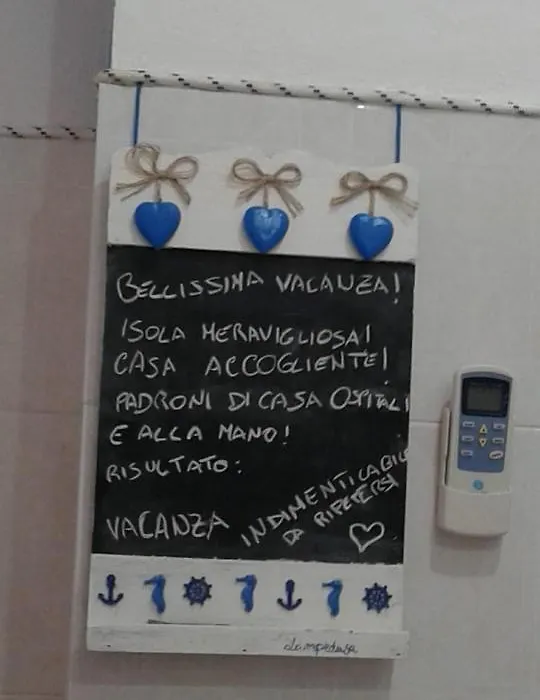 BELLISSIMA VACANZA!
ISOLA MERAVIGLIOSA!
CASA ACCOGLIENTE!
PADRONI DI CASA OSPITALI
E ALLA MANO!
RISULTATO:
VACANZA INDIMENTICABILE
DA RIPETERSI
Lampedusa